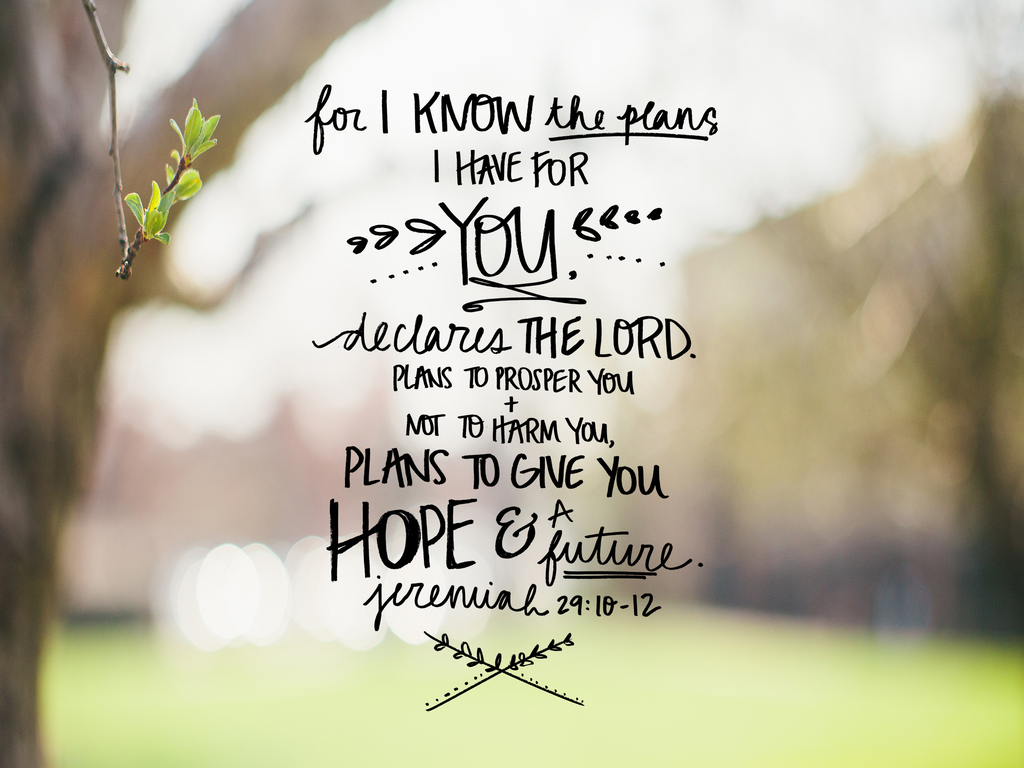 for I KNOW the plans
I HAVE FOR
YOU,
declares THE LORD.
PLANS TO PROSPER YOU
+
NOT TO HARM YOU,
PLANS TO GIVE YOU
HOPE & A future.
jeremiah 29:10-12